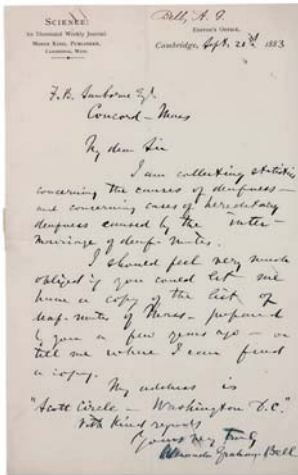 Bell, A. G.
SCIENCE:
An Illustrated Weekly Journal.
MOSES KING, PUBLISHER,
CAMBRIDGE, MASS.
EDITOR'S OFFICE,
Cambridge, Sept. 20th 1883
F. B. Sanborne Esq.
Concord - Mass
My dear Sir
I am collecting statistics
concerning the causes of deafness -
and concerning cases of hereditary
deafness caused by the inter-
marriage of deaf-mutes.
I should feel very much
obliged if you could let me
have a copy of the list of
deaf-mutes of Mass. - prepared
by you a few years ago - or
tell me where I can find
a copy.
My address is
"Scott Circle - Washington D.C."
With kind regards
Yours very truly
Alexander Graham Bell